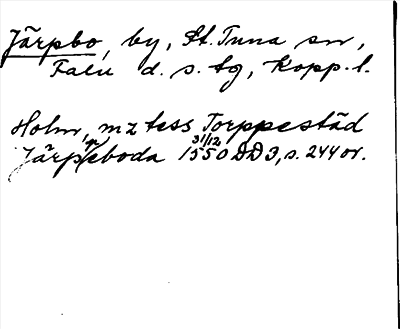 Järpbo, by, St. Tuna sn,
Falu d. s. tg, Kopp. l.
Holm, m z tess Torppestäd
Järp(p)eboda 31/12 1550 DD 3, s. 244 or.